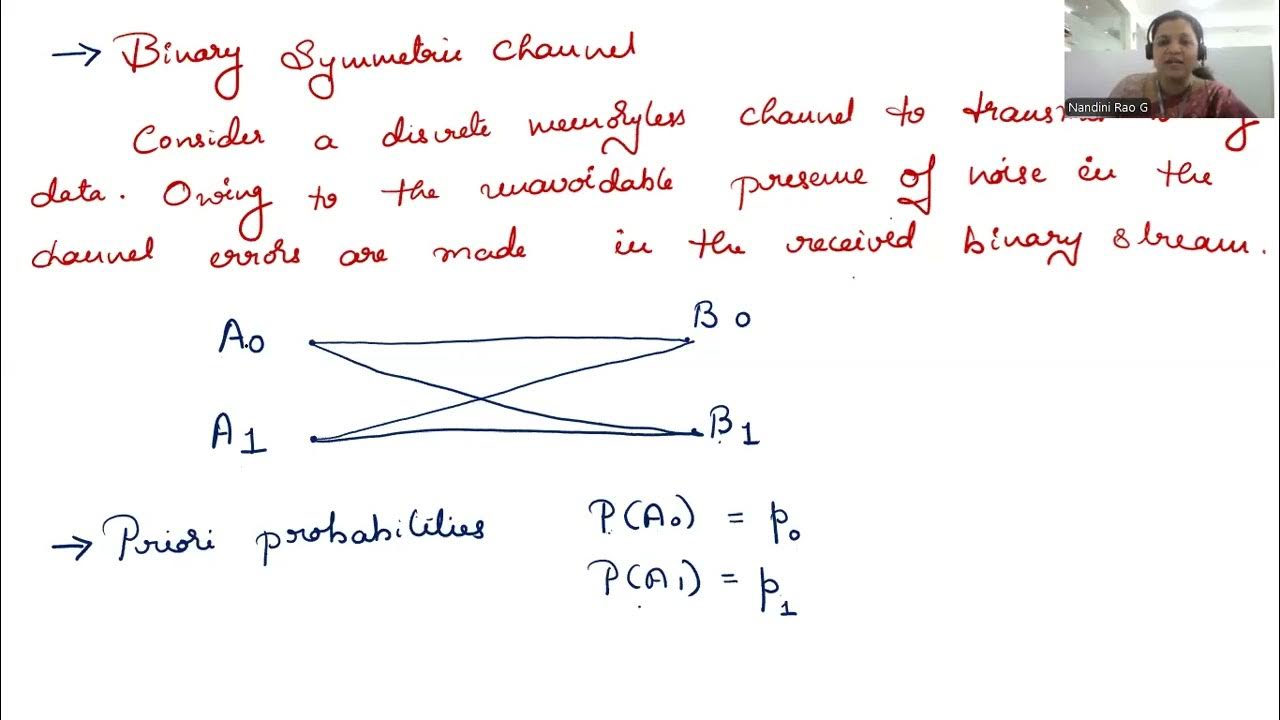 → Binary Symmetric Channel
Nandini Rao G
Consider a discrete memoryless channel to
data. Owing to the unavoidable presence of noise in the
channel errors are made in the received binary stream.
A0 B0
A1 B1
→ Priori probabilities P(A0) = p0
P(A1) = p1